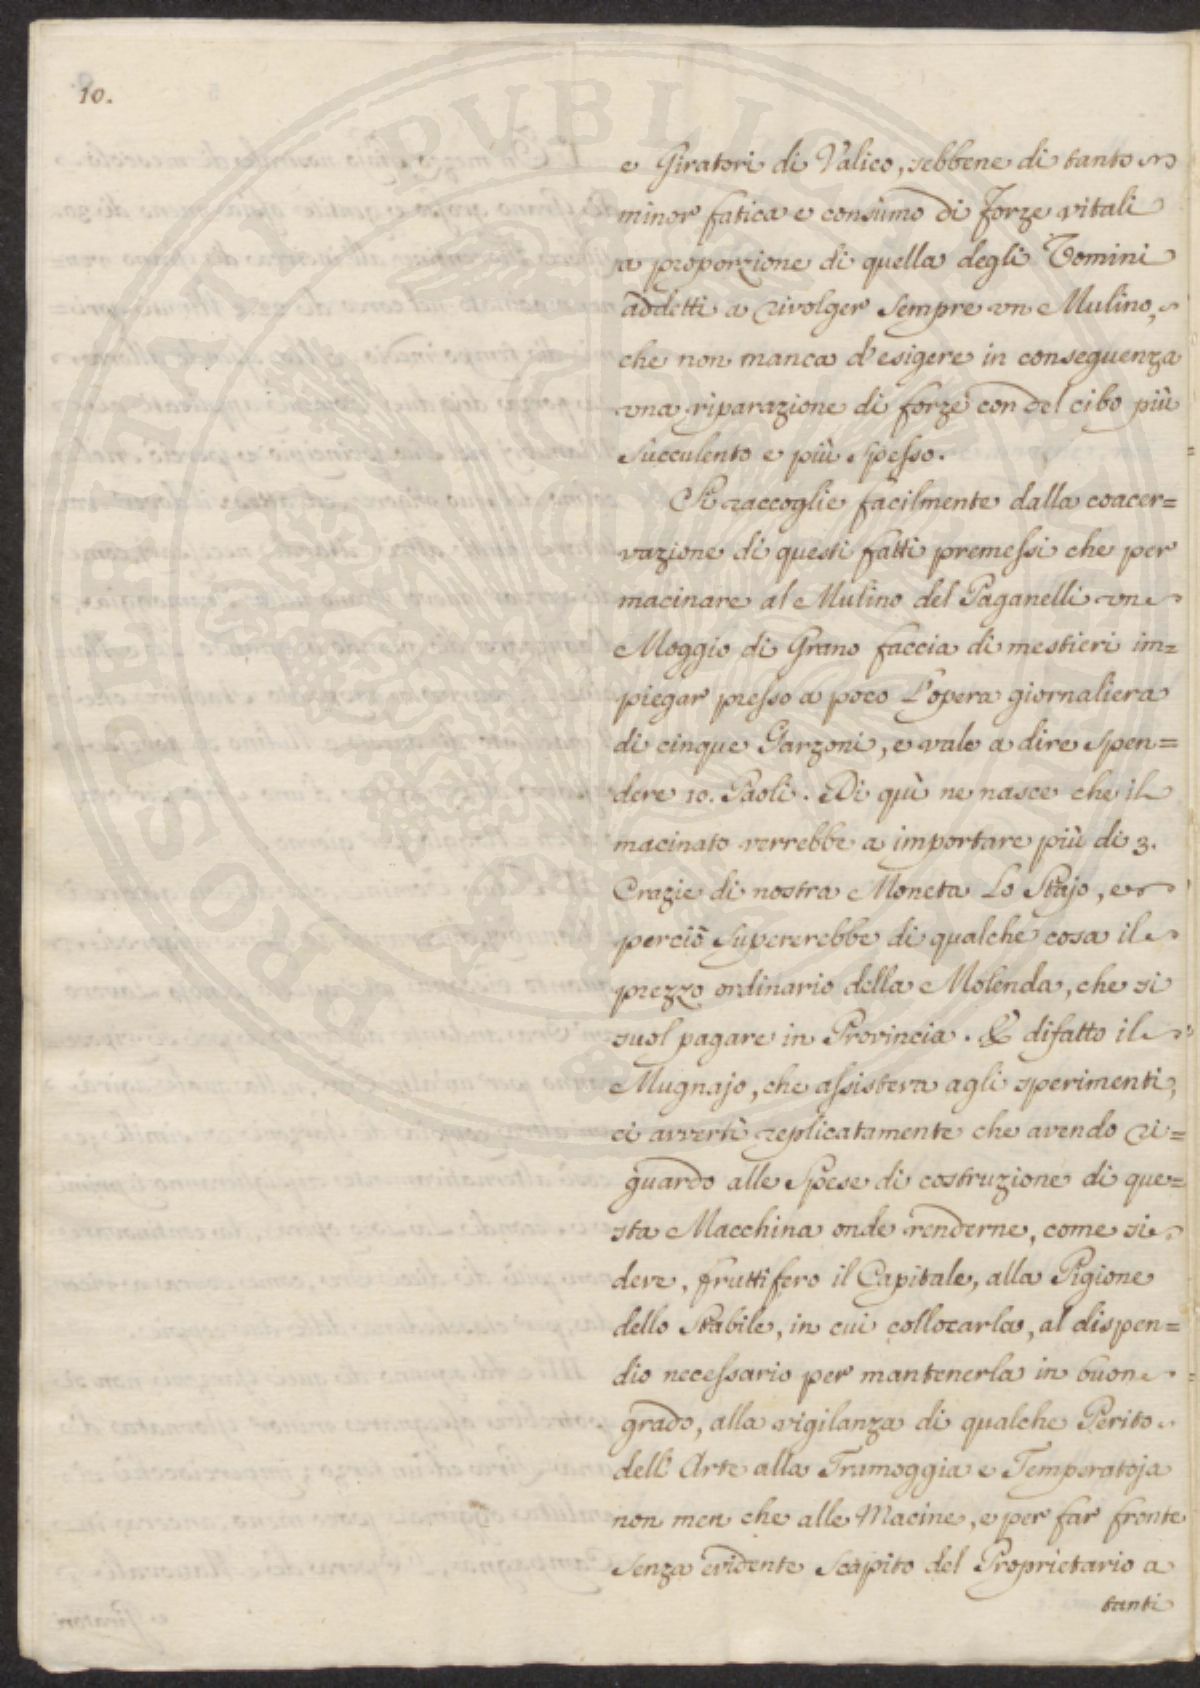 10.
e Giratori di Valico, sebbene di tanto
minor fatica e consumo di forze vitali
a proporzione di quella degli Uomini
addetti a rivolger sempre un Mulino,
che non manca d'esigere in conseguenza
una riparazione di forze con del cibo più
succulento e più spesso.
Si raccoglie facilmente dalla coacer=
vazione di questi fatti premessi che per
macinare al Mulino del Paganelli un
Moggio di Grano faccia di mestieri im=
piegar presso a poco l'opera giornaliera
di cinque Garzoni, e vale a dire spen=
dere 10. Paoli. Di quì ne nasce che il
macinato verrebbe a importare più di 3.
Crazie di nostra Moneta lo Stajo, e
perciò supererebbe di qualche cosa il
prezzo ordinario della Molenda, che si
suol pagare in Provincia. E difatto il
Mugnajo, che assisteva agli sperimenti,
ci avvertì replicatamente che avendo ri=
guardo alle spese di costruzione di que=
sta Macchina onde renderne, come si
deve, fruttifero il Capitale, alla Pigione
dello Stabile, in cui collocarla, al dispen=
dio necessario per mantenerla in buon
grado, alla vigilanza di qualche Perito
dell'Arte alla Tramoggia e Temperatoja
non men che alle Macine, e per far fronte
senza evidente scapito del Proprietario a
tanti
PROSPERITATI PUBLICAE